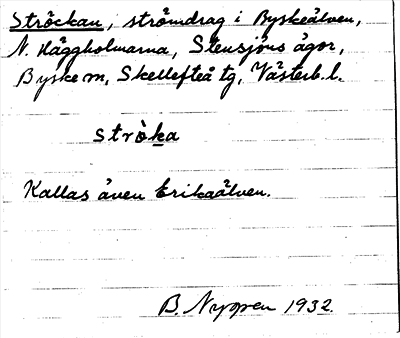 Ströckan, strömdrag i Byskeälven,
N. Häggholmarna, Stensjöns ägor,
Byske sn, Skellefteå tg, Västerb. l.
strò̀ka
Kallas även Erikaälven.
B. Nygren 1932.